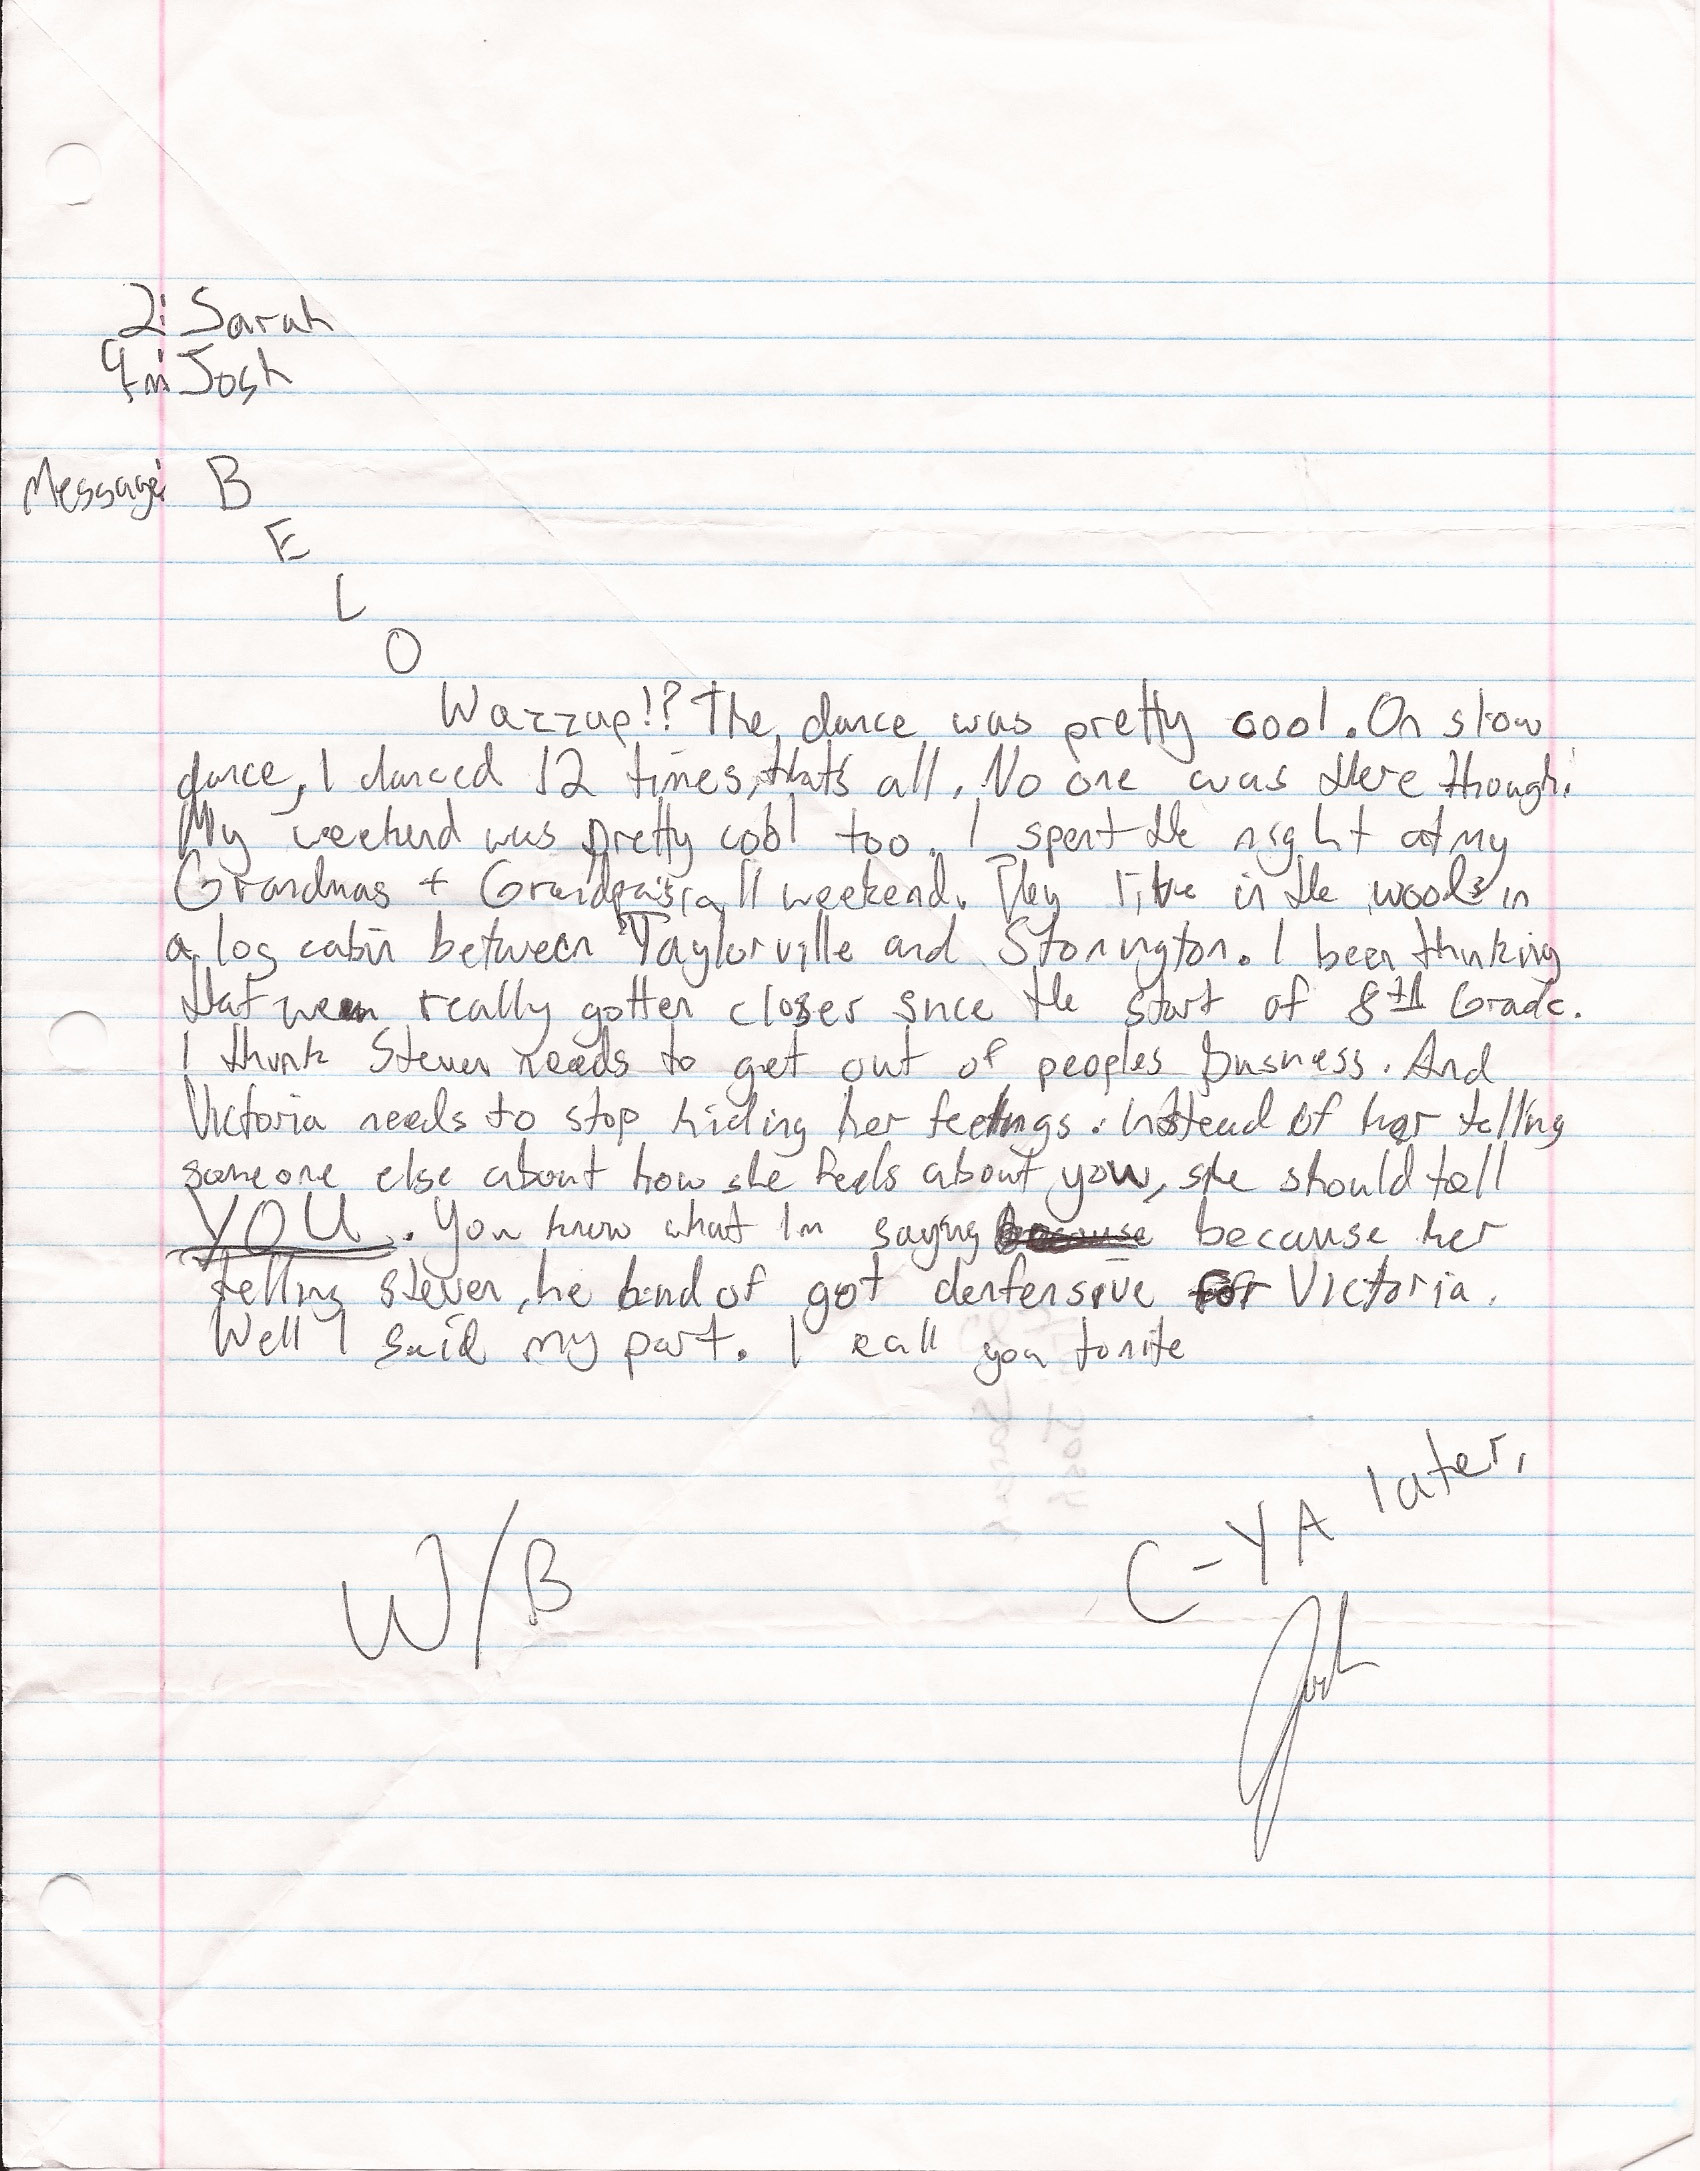 2: Sarah
Fm: Josh
Message: B
E
L
O
Wazzup!? The dance was pretty cool. On slow
dance, I danced 12 times, that's all. No one was there though.
My weekend was pretty cool too. I spent the night at my
Grandmas + Grandpa's all weekend. They live in the woods in
a log cabin between Taylorville and Stonington. I been thinking
that we really gotten closer snce the start of 8th Grade.
I think Steven needs to get out of peoples busness. And
Victoria needs to stop hiding her feelings. Instead of her telling
someone else about how she feels about you, she should tell
YOU. You know what Im saying because because her
telling steven, he kind of got denfensive for Victoria.
Well I said my part. I call you tonite
C-YA later,
W/B
Josh